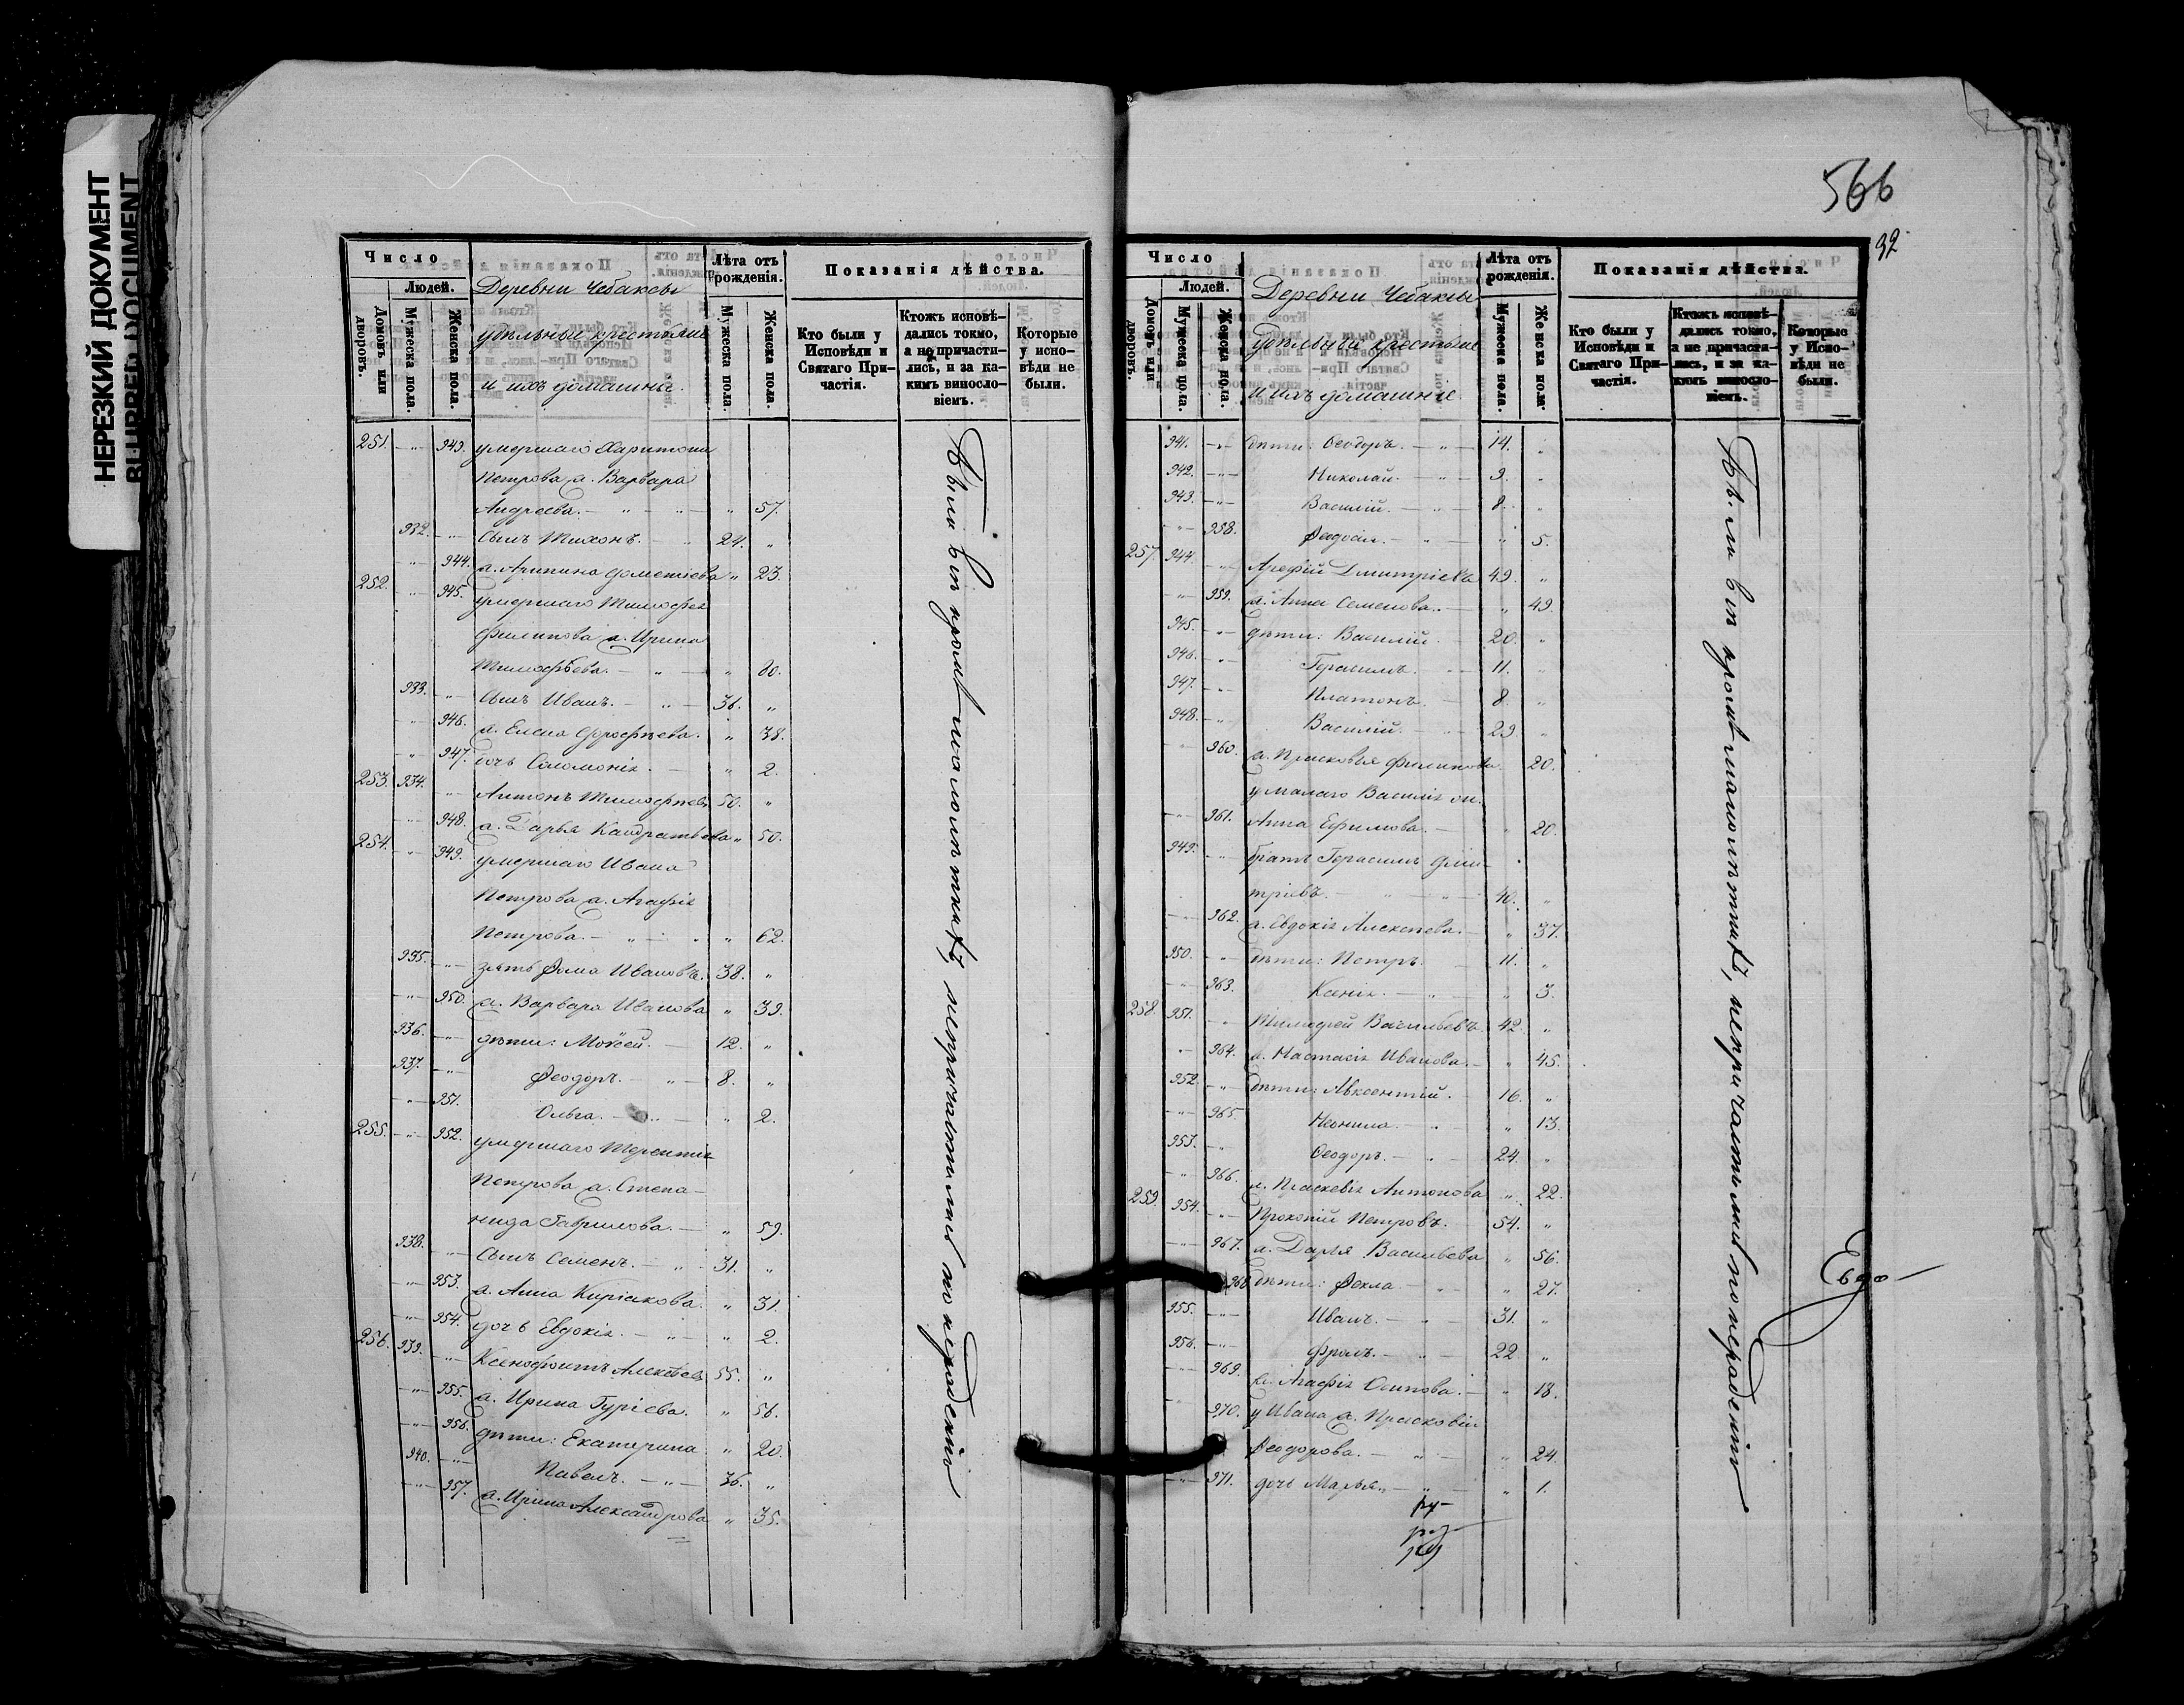 НЕРЕЗКИЙ ДОКУМЕНТ
BLURRED DOCUMENT
Число
Людей.
Домовъ или дворовъ.
Мужеска пола.
Женска пола.
Деревни Чебаксы
удѣльные крестьяне
и ихъ домашніе.
Лѣта отъ рожденія.
Мужеска пола.
Женска пола.
Показанія дѣйства.
Кто были у Исповѣди и Святаго При-частія.
Ктожъ исповѣ-дались токмо, а не причасти-лись, и за ка-кимъ виносло-віемъ.
Которые у испо-вѣди не были.
251. " 943. умершаго Харитона
Петрова ж. Варвара
Андреева. " 57.
932. " Сынъ Тихонъ. 24. "
" 944. ж. Агрипина Дометіева " 23.
252. " 945. умершаго Тимофея
Филипова ж. Ирина
Тимофѣева. " 60.
933. " Сынъ Иванъ. 36. "
" 946. ж. Елена Дорофѣева. " 38.
" 947. дочь Саломонія. " 2.
253. 934. " Антонъ Тимофѣевъ 50. "
" 948. ж. Дарья Кандратьева " 50.
254. " 949. умершаго Ивана
Петрова ж. Агафія
Петрова. " 62.
935. " зять Фома Ивановъ. 38. "
" 950. ж. Варвара Иванова " 39.
936. " дѣти: Моѵсей. 12. "
937. " Феодоръ. 8. "
" 951. Ольга. " 2.
255. " 952. умершаго Терентія
Петрова ж. Степа-
нида Гаврилова. " 59.
938. " Сынъ Семенъ. 31. "
" 953. ж. Анна Киріакова. " 31.
" 954. дочь Евдокія. " 2.
256. 939. " Ксенофонтъ Алексѣевъ 55. "
" 955. ж. Ирина Гуріева. " 56.
" 956. дѣти: Екатерина " 20.
940. " Павелъ. 36. "
" 957. ж. Ирина Александрова " 35.
Были всѣ кромѣ малолѣтнихъ, непричастились по нерадѣнію
566
92
Число
Людей.
Домовъ или дворовъ.
Мужеска пола.
Женска пола.
Деревни Чебаксы
Удѣльные крестьяне
и ихъ домашніе.
Лѣта отъ рожденія.
Мужеска пола.
Женска пола.
Показанія дѣйства.
Кто были у Исповѣди и Святаго При-частія.
Ктожъ исповѣ-дались токмо, а не причасти-лись, и за ка-кимъ виносло-віемъ.
Которые у Испо-вѣди не были.
941. " дѣти: Ѳеодоръ. 14. "
942. " Николай. 9. "
943. " Василій. 8. "
" 958. Феодосія. " 5.
257. 944. " Арефій Дмитріевъ 49. "
" 959. ж. Анна Семенова. " 49.
945. " дѣти: Василій. 20. "
946. " Герасимъ. 11. "
947. " Платонъ. 8. "
948. " Василій. 29 "
" 960. ж. Прасковья Филипова. 20.
у малаго Василія ж.
" 961. Анна Ефимова. " 20.
949. " братъ Герасимъ Дми-
тріевъ 40. "
" 962. ж. Евдокія Алексѣева. " 37.
950. " дѣти: Петръ. 11. "
" 963. Ксенія. " 3.
258. 951. " Тимофей Васильевъ. 42. "
" 964. ж. Настасія Иванова. " 45.
952. " дѣти: Авксентій. 16. "
" 965. Неонила. " 13.
953. " Ѳеодоръ. 24. "
" 966. ж. Праскевія Антонова " 22.
259. 954. " Прокопій Петровъ. 54. "
" 967. ж. Дарья Васильева " 56.
968. дѣти: Фекла " 27.
955. " Иванъ. 31. "
956. " Фролъ. 22 "
" 969. ж. Агафія Осипова. " 18.
" 970. у Ивана ж. Прасковія
Феодорова. " 24.
" 971. дочь Марья " 1.
Были всѣ кромѣ малолѣтнихъ, непричастились по нерадѣнію
Евдо-